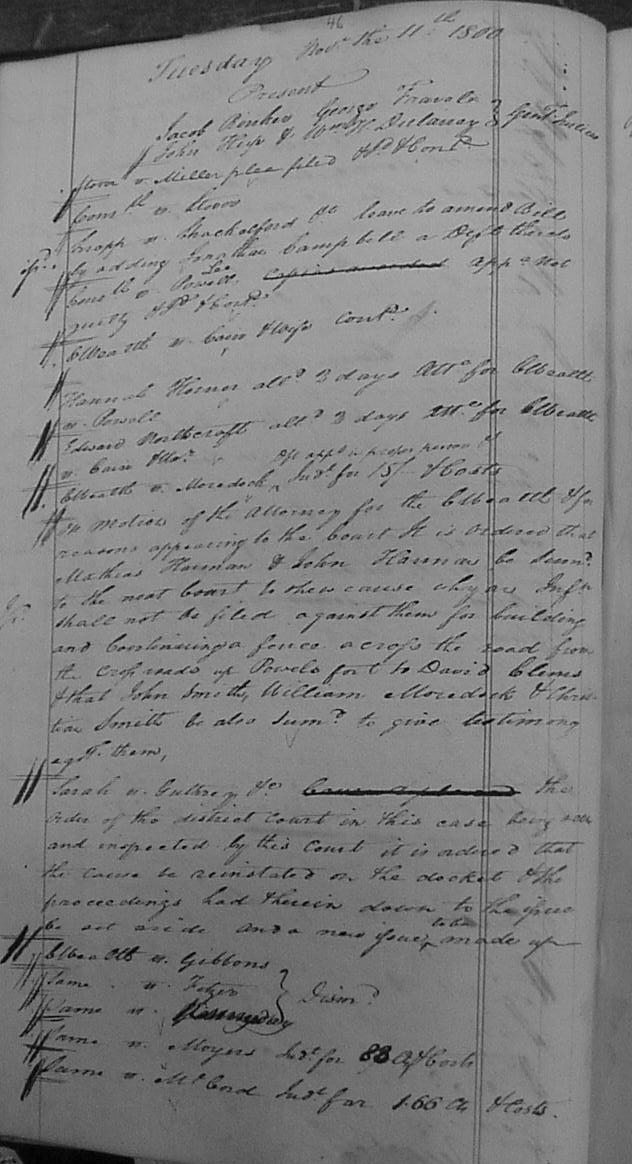 46
Tuesday Novr. the 11th 1800
Present
Jacob Rinker George Fravele
John Hess & Wm. W. Dulaney Gent. Justices
Stover v. Miller plea filed & Contd.
Comth v. Stover
Knopp v. Shackelford &c leave to amend Bill
by adding Jonathan Campbell a Deft thereto
Comth v. Powell appd. Not
guilty & Contd.
C Wealth v. Cain & Wife Contd.
Hannah Horner alld. 3 days Atte for C Wealth
v. Powell
Edward Northcraft alld. 3 days Atte for C Wealth
v. Cain & Ux.
C Wealth v. Moredock Deft appd in proper person Judt for 15/- & Costs
On motion of the Attorney for the C Wealth & for
reasons appearing to the Court It is ordered that
Mathias Harman & John Harman be Summd.
to the next Court to shew cause why an Infn
shall not be filed against them for building
and Continuing a fence across the road from
the cross roads up Powels fort to David Clems
& that John Smith, William Moredock & Chris-
tian Smith be also Summd. to give testimony
agst. them,
Sarah v. Guthrey &c the
order of the district Court in this case being seen
and inspected by this Court it is ordered that
the cause be reinstated on the docket & the
proceedings had therein down to the issue
be set aside and a new issue to be made up
C Wealth v. Gibbons
Same v. Fetzer
Same v.
Dismd.
Same v. Moyers Judt for 83 Cts & Costs
Same v. McCord Judt for 1.66 Cts & Costs.